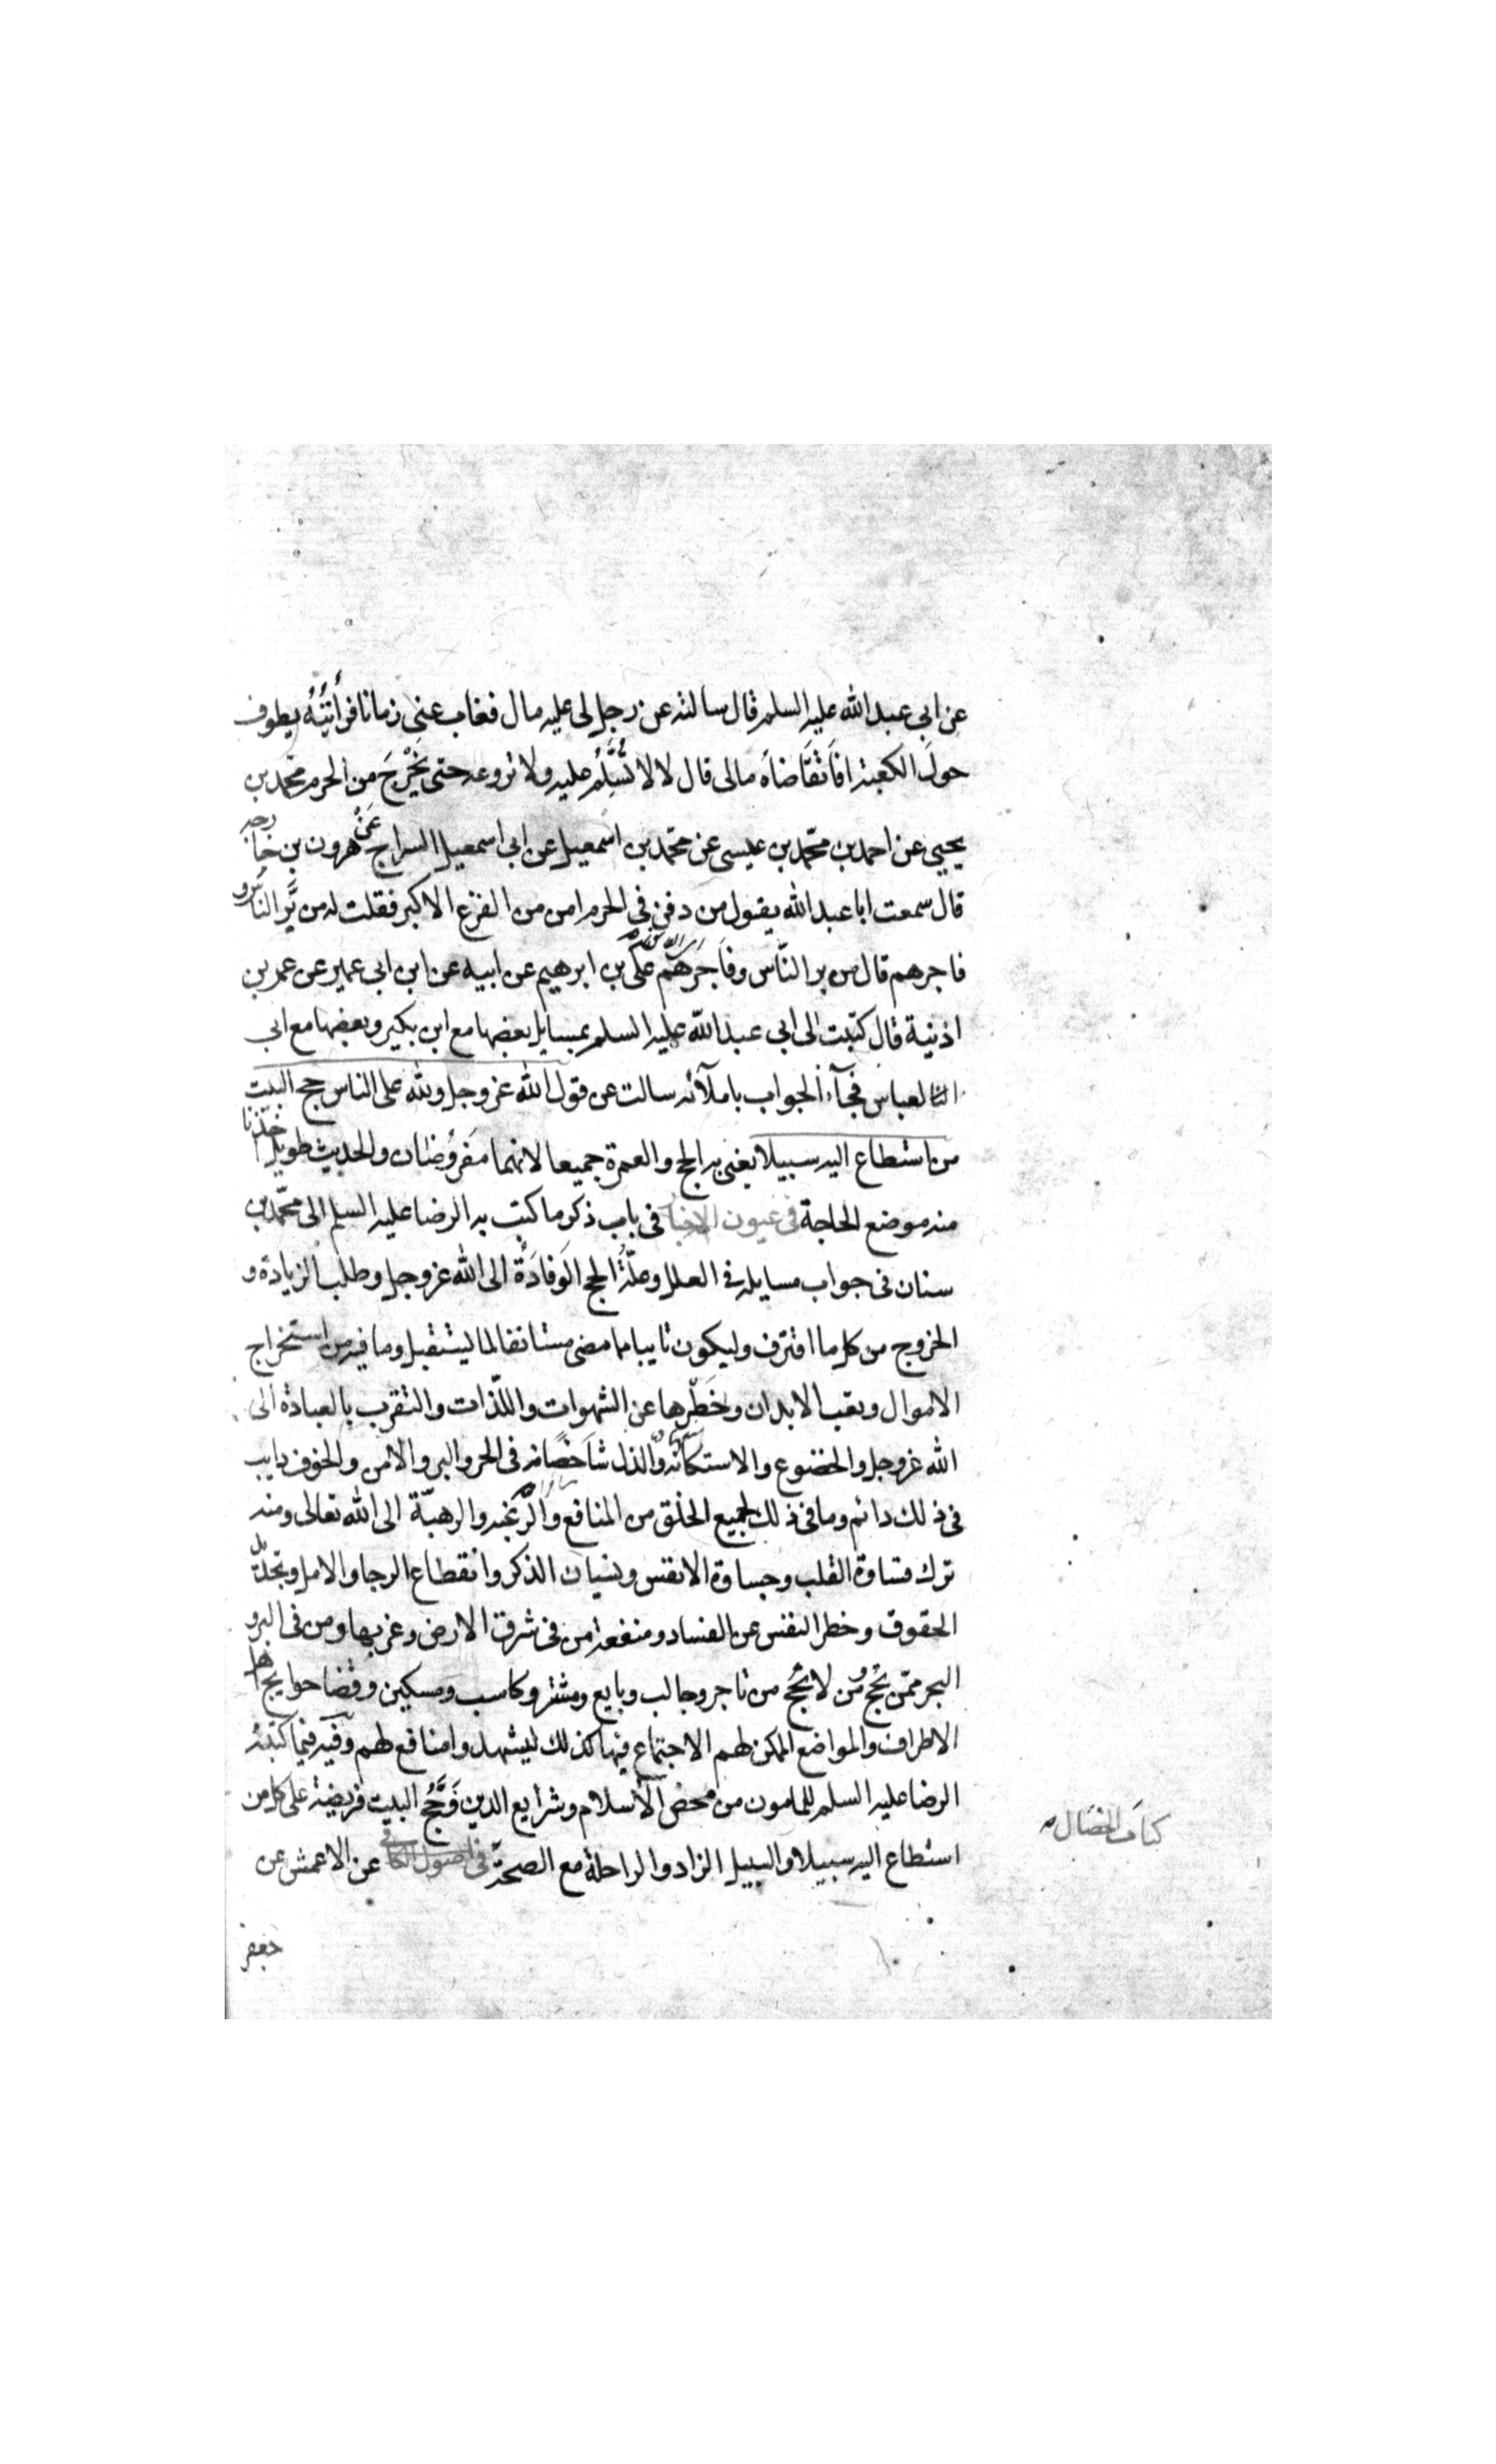 عن ابى عبد الله عليه السلم قال سالته عن رجل لى عليه مال فغاب عنى زمانا فرأيته يطوف
حول الكعبة افاتقاضاه مالى قال لا لا تسلم عليه ولا تروعه حتى يخرج من الحرم محمد بن
يحيى عن احمد بن محمد بن عيسى عن محمد بن اسمعيل عن ابى اسمعيل السراج عن هرون بن خارجه
قال سمعت ابا عبد الله يقول من دفن فى الحرم امن من الفزع الاكبر فقلت له من بر الناس و
فاجرهم قال من بر الناس وفاجرهم على بن ابرهيم عن ابيه عن ابن ابى عمير عن عمر بن
اذنية قال كتبت الى ابى عبد الله عليه السلم بمسايل بعضها مع ابن بكير وبعضها مع ابى
العباس فجآء الجواب باملآئه سالت عن قول الله عز وجل ولله على الناس حج البيت
من استطاع اليه سبيلا يعنى به الحج والعمرة جميعا لانهما مفروضان والحديث طويل اخذنا
منه موضع الحاجة فى عيون الاخبار فى باب ذكر ما كتب به الرضا عليه السلم الى محمد بن
سنان فى جواب مسايله فى العلل وعلة الحج الوفادة الى الله عز وجل وطلب الزيادة و
الخروج من كل ما اقترف وليكون تايبا مما مضى مستانفا لما يستقبل وما فيه من استخراج
الاموال وتعب الابدان وخطرها عن الشهوات واللذات والتقرب بالعبادة الى
الله عز وجل والخضوع والاستكانة والذل شاخصا فى الحر والبر والامن والخوف دايب
فى ذلك دائم وما فى ذلك لجميع الخلق من المنافع والرغبة والرهبة الى الله تعالى ومنه
ترك قساوة القلب وجساوة الانفس ونسيان الذكر وانقطاع الرجا والامل وتجديد
الحقوق وخطر النفس عن الفساد ومنفعة من فى شرق الارض وغربها ومن فى البر و
البحر ممن يحج ومن لا يحج من تاجر وجالب وبايع ومشتر وكاسب ومسكين وقضا حوايج اهل
الاطراف والمواضع الممكن لهم الاجتماع فيها كذلك ليشهدوا منافع لهم وفيه فيما كتبه
الرضا عليه السلم للمامون من محض الاسلام وشرايع الدين وحج البيت فريضة على كل من
استطاع اليه سبيلا والسبيل الزاد والراحلة مع الصحة فى اصول الكافى عن الاعمش عن
كتاب الخصال
جعفر